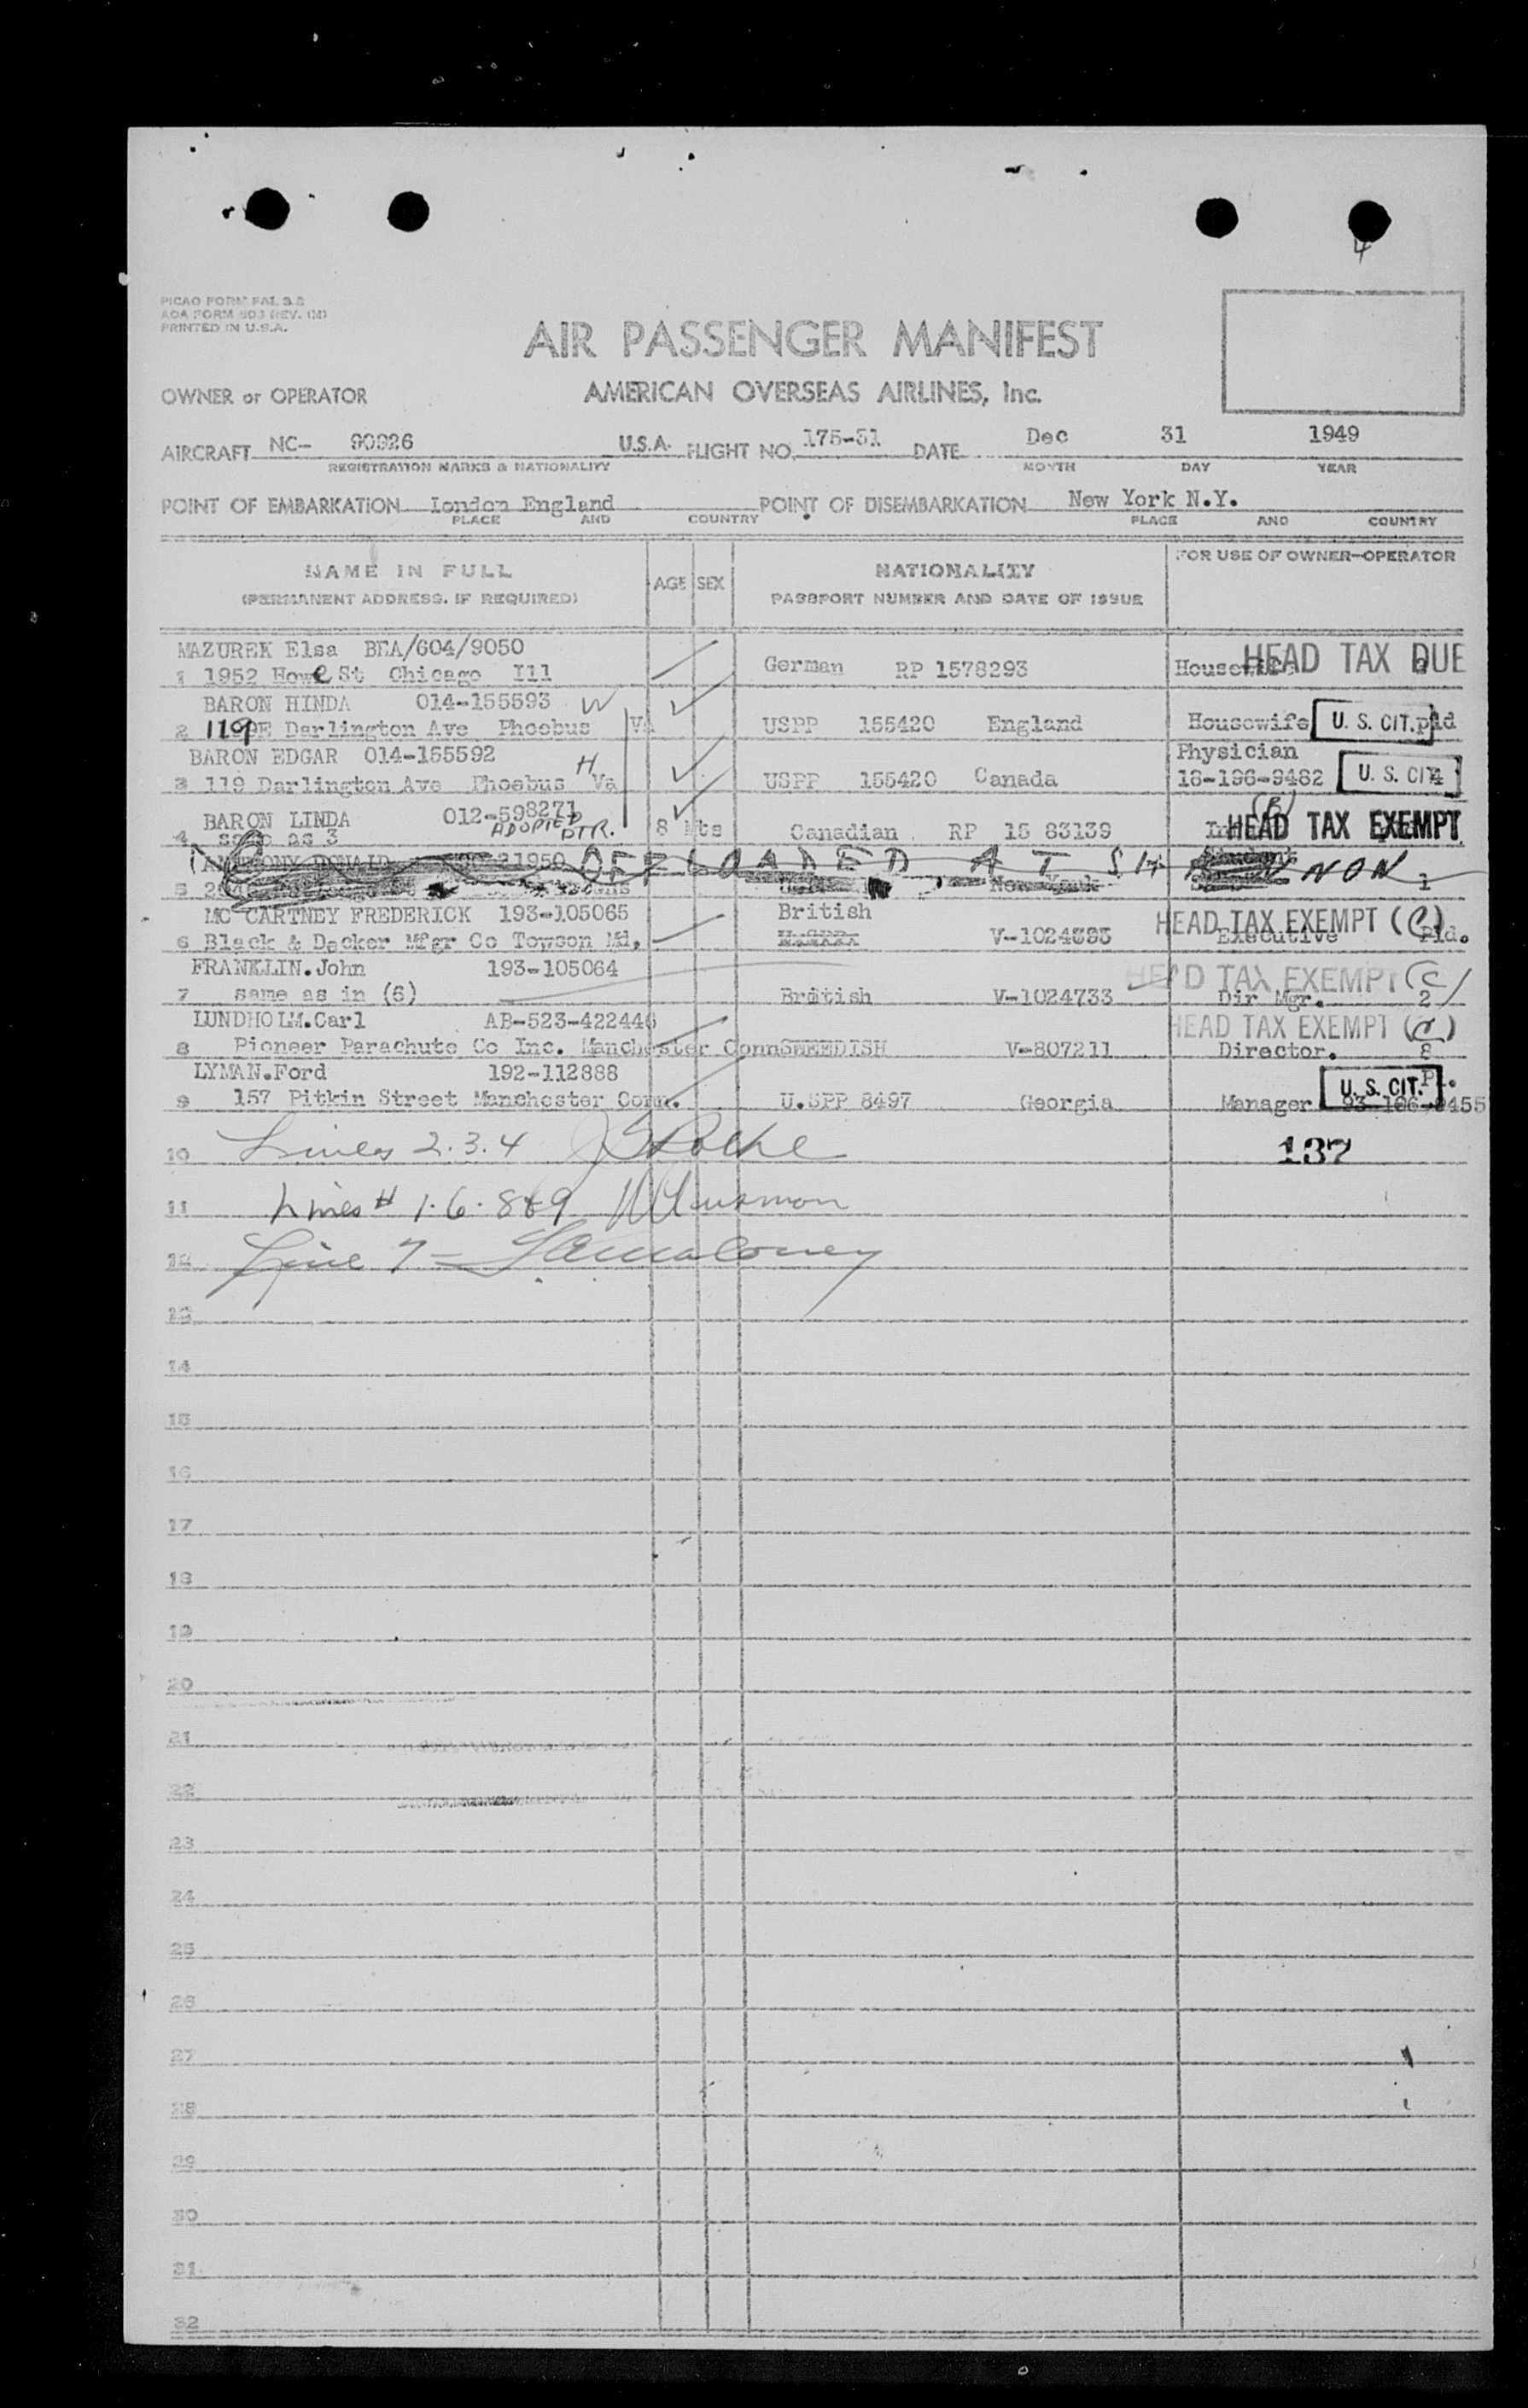 4
PICAO FORM FAL 3.2
AOA FORM 603 REV. (M)
PRINTED IN U.S.A.
AIR PASSENGER MANIFEST
OWNER or OPERATOR AMERICAN OVERSEAS AIRLINES, Inc.
AIRCRAFT NC- 90926 U.S.A. FLIGHT NO. 175-31 DATE Dec 31 1949
REGISTRATION MARKS & NATIONALITY MONTH DAY YEAR
POINT OF EMBARKATION London England POINT OF DISEMBARKATION New York N.Y.
PLACE AND COUNTRY PLACE AND COUNTRY
NAME IN FULL AGE SEX NATIONALITY FOR USE OF OWNER-OPERATOR
(PERMANENT ADDRESS, IF REQUIRED) PASSPORT NUMBER AND DATE OF ISSUE
MAZUREK Elsa BEA/604/9050 HEAD TAX DUE
1 1952 Howe St Chicago Ill German RP 1578293 Housewife
BARON HINDA 014-155593 W
2 119 Darlington Ave Phoebus Va USPP 155420 England Housewife U. S. CIT. pld
BARON EDGAR 014-155592 H Physician
3 119 Darlington Ave Phoebus Va USPP 155420 Canada 16-196-9482 U. S. CIT. 4
BARON LINDA 012-598271 ADOPTED DTR. 8 Mts Canadian RP 15 83139 HEAD TAX EXEMPT (B)
4 same as 3
ANTHONY DONALD 1950 OFFLOADED AT SHANNON
5 New York 1
MC CARTNEY FREDERICK 193-105065 British HEAD TAX EXEMPT (C)
6 Black & Decker Mfgr Co Towson Md, V-1024393 Executive Pld.
FRANKLIN.John 193-105064 HEAD TAX EXEMPT (C)
7 same as in (6) British V-1024733 Dir Mgr. 2
LUNDHOLM.Carl AB-523-422446 HEAD TAX EXEMPT (C)
8 Pioneer Parachute Co Inc. Manchester Conn SWEEDISH V-807211 Director. 8
LYMAN.Ford 192-112888 U.S. CIT. Pl.
9 157 Pitkin Street Manchester Conn. U.SPP 8497 Georgia Manager 93-196-9455
10 Lines 2.3.4 137
11 Lines # 1.6.8&9
12 Line 7 =
13
14
15
16
17
18
19
20
21
22
23
24
25
26
27
28
29
30
31
32